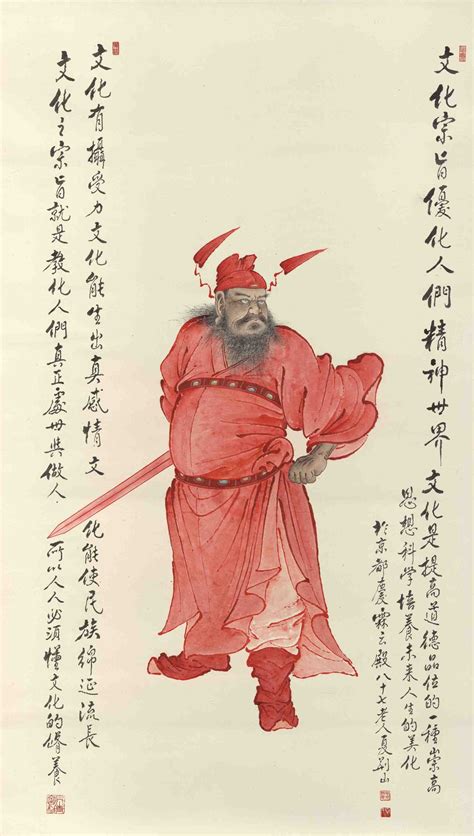 文化宗旨優化人們精神世界文化是提高道德品位的一種崇高
思想科学培養未来人生的美化
於京都慶霖云殿八十七老人夏荊山
文化有攝受力文化能生出真感情文化能使民族綿延流長
文化之宗旨就是教化人們真正處世與做人.所以人人必須懂文化的脩養